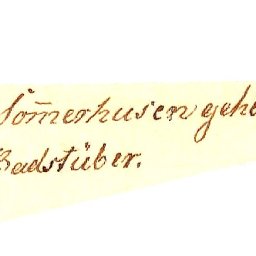 Som̄erhusen gehe
Badstüber.